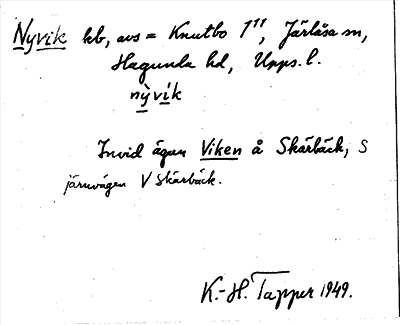 Nyvik hb, avs = Knutbo 1¹¹, Järlåsa sn,
Hagunda hd, Upps. l.
nỳvík
Invid ägan Viken å Skärbäck, S
järnvägen V Skärbäck.
K.-H. Tapper 1949.